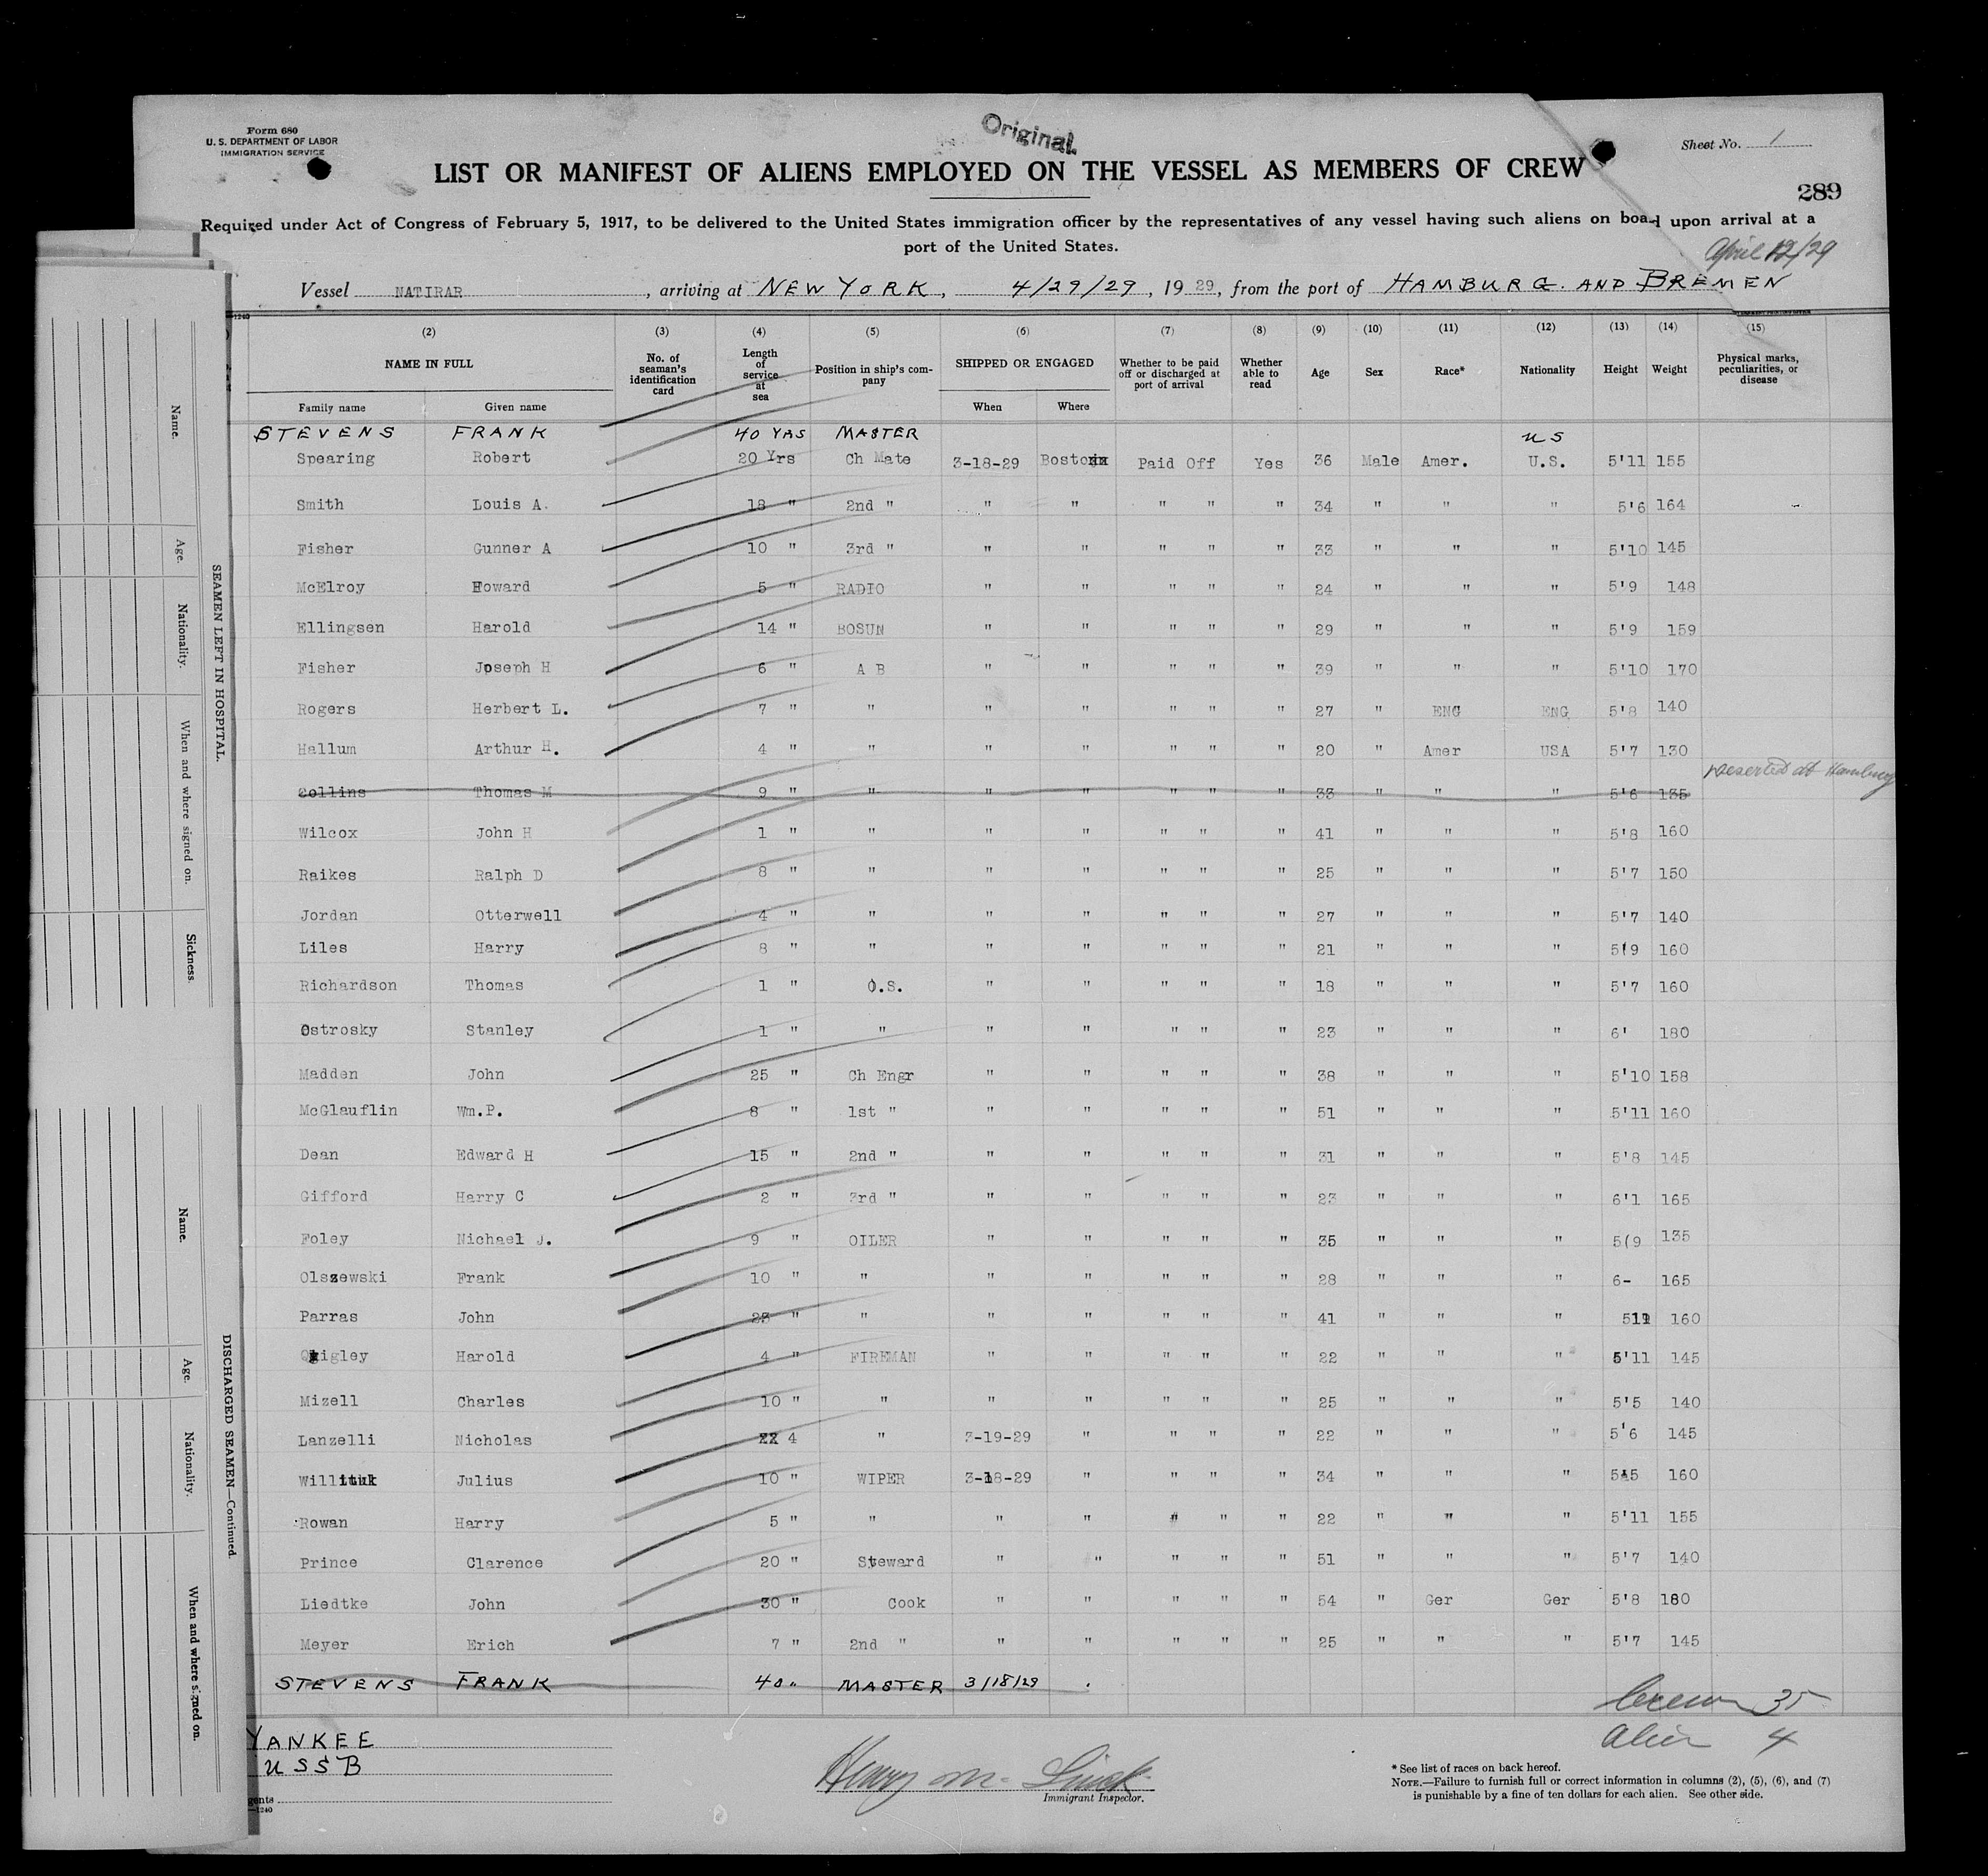 Form 680
U. S. DEPARTMENT OF LABOR
IMMIGRATION SERVICE
Original
Sheet No. 1
LIST OR MANIFEST OF ALIENS EMPLOYED ON THE VESSEL AS MEMBERS OF CREW
289
Required under Act of Congress of February 5, 1917, to be delivered to the United States immigration officer by the representatives of any vessel having such aliens on board upon arrival at a
port of the United States.
April 12/29
Vessel NATIRAR, arriving at NEW YORK, 4/29/29, 1929, from the port of HAMBURG. AND BREMEN
(2) (3) (4) (5) (6) (7) (8) (9) (10) (11) (12) (13) (14) (15)
NAME IN FULL No. of seaman's identification card Length of service at sea Position in ship's company SHIPPED OR ENGAGED Whether to be paid off or discharged at port of arrival Whether able to read Age Sex Race* Nationality Height Weight Physical marks, peculiarities, or disease
Family name Given name When Where
STEVENS FRANK 40 YRS MASTER U S
Spearing Robert 20 Yrs Ch Mate 3-18-29 Boston Paid Off Yes 36 Male Amer. U.S. 5'11 155
Smith Louis A. 18 " 2nd " " " " " " 34 " " " 5'6 164
Fisher Gunner A 10 " 3rd " " " " " " 33 " " " 5'10 145
McElroy Howard 5 " RADIO " " " " " 24 " " " 5'9 148
Ellingsen Harold 14 " BOSUN " " " " " 29 " " " 5'9 159
Fisher Joseph H 6 " A B " " " " " 39 " " " 5'10 170
Rogers Herbert L. 7 " " " " " " " 27 " ENG ENG 5'8 140
Hallum Arthur H. 4 " " " " " " " 20 " Amer USA 5'7 130
Collins Thomas M 9 " " " " " " " 33 " " " 5'6 135 Deserted at Hamburg
Wilcox John H 1 " " " " " " " 41 " " " 5'8 160
Raikes Ralph D 8 " " " " " " " 25 " " " 5'7 150
Jordan Otterwell 4 " " " " " " " 27 " " " 5'7 140
Liles Harry 8 " " " " " " " 21 " " " 5'9 160
Richardson Thomas 1 " O.S. " " " " " 18 " " " 5'7 160
Ostrosky Stanley 1 " " " " " " " 23 " " " 6' 180
Madden John 25 " Ch Engr " " " " " 38 " " " 5'10 158
McGlauflin Wm.P. 8 " 1st " " " " " " 51 " " " 5'11 160
Dean Edward H 15 " 2nd " " " " " " 31 " " " 5'8 145
Gifford Harry C 2 " 3rd " " " " " " 23 " " " 6'1 165
Foley Nichael J. 9 " OILER " " " " " 35 " " " 5(9 135
Olszewski Frank 10 " " " " " " " 28 " " " 6- 165
Parras John 23 " " " " " " " 41 " " " 511 160
Quigley Harold 4 " FIREMAN " " " " " 22 " " " 5'11 145
Mizell Charles 10 " " " " " " " 25 " " " 5'5 140
Lanzelli Nicholas 22 4 " 3-19-29 " " " " 22 " " " 5'6 145
Willituk Julius 10 " WIPER 3-18-29 " " " " 34 " " " 5'5 160
Rowan Harry 5 " " " " " " " 22 " " " 5'11 155
Prince Clarence 20 " Steward " " " " " 51 " " " 5'7 140
Liedtke John 30 " Cook " " " " " 54 " Ger Ger 5'8 180
Meyer Erich 7 " 2nd " " " " " " 25 " " " 5'7 145
STEVENS FRANK 40 " MASTER 3/18/29
Crew 35
Alien 4
YANKEE
USSB
gents
—1240
Henry M.
Immigrant Inspector.
* See list of races on back hereof.
NOTE.—Failure to furnish full or correct information in columns (2), (5), (6), and (7)
is punishable by a fine of ten dollars for each alien. See other side.
SEAMEN LEFT IN HOSPITAL.
Name.
Age.
Nationality.
When and where signed on.
Sickness.
DISCHARGED SEAMEN—Continued.
Name.
Age.
Nationality.
When and where signed on.